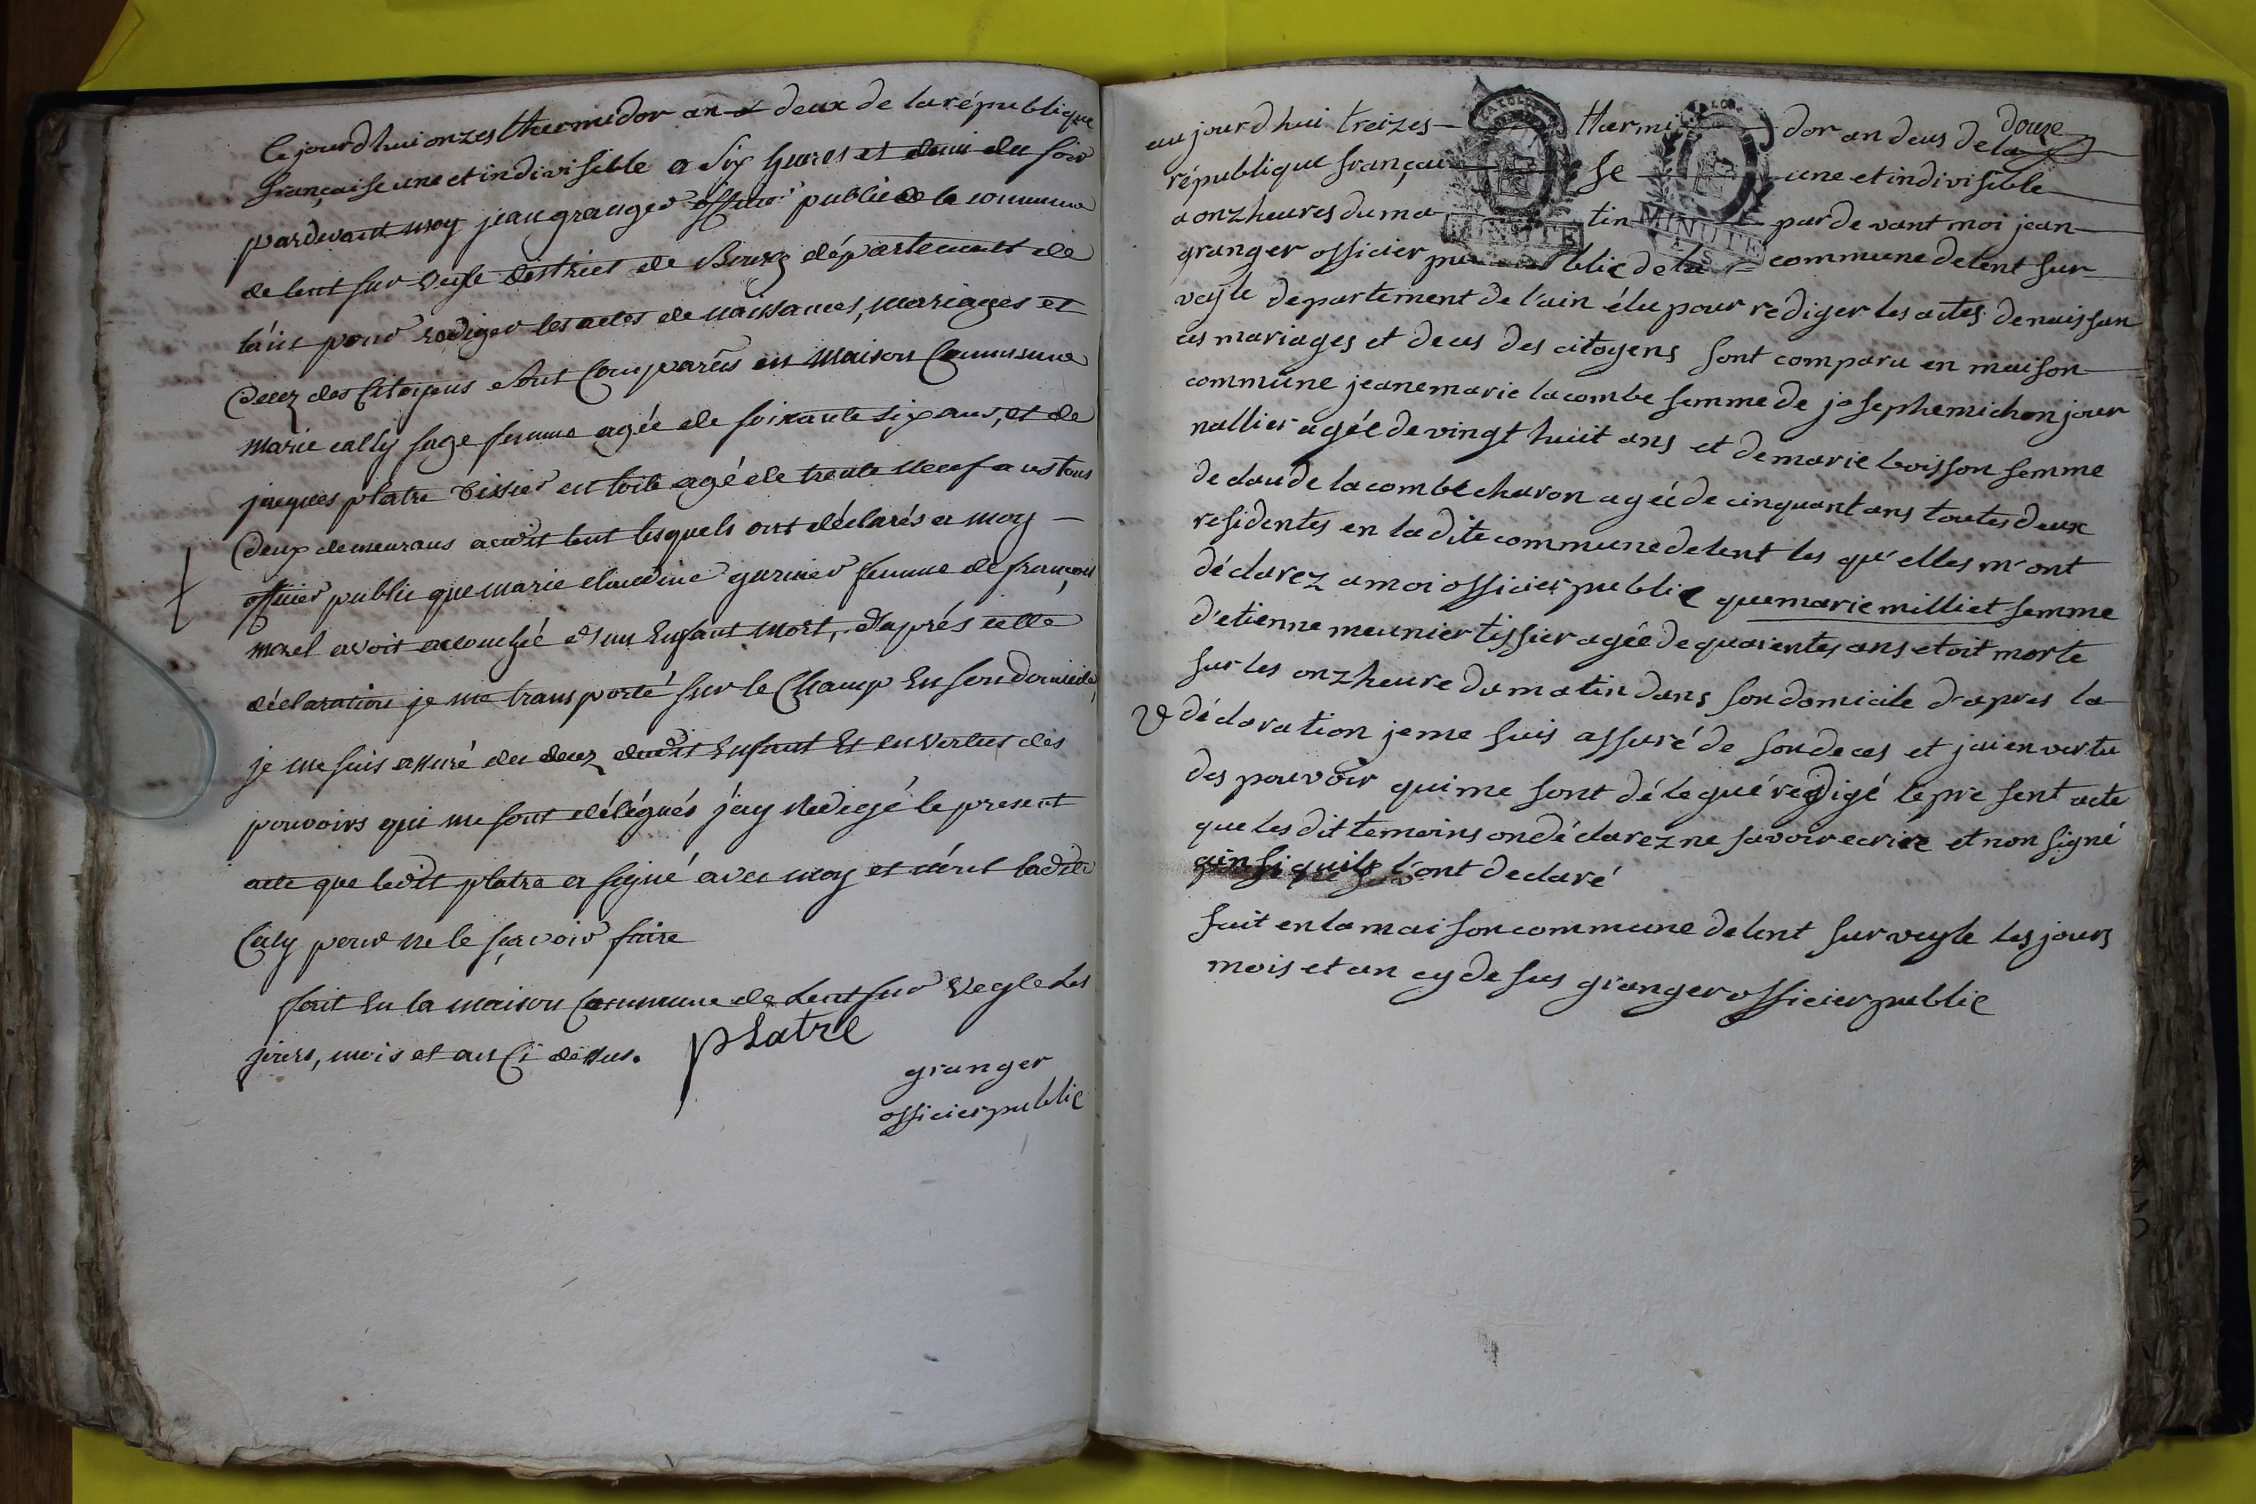 Cejourdhui onzes thermidor an deux de la république
française une et indivisible a six heures et demi du soir
pardevant moy jean granger officier public de la commune
de lent sur veyle district de Bourg département de
l'ain pour rediger les actes de naissances, mariages et
decez des citoyens sont comparûs en maison commune
marie cally sage femme agée de soixante six ans, et de
jacques platre tissier en toile agé de trente neuf ans tous
deux demeurans audit lent lesquels ont déclarés a moy —
officier public que marie claudine garnier femme de françois
morel avoit accouchée d'un enfant mort, d'aprés cette
déclaration je me transporté sur le champ en son domicile,
je me suis assuré du decez dudit enfant et en vertus des
pouvoirs qui me sont délégués j'ay redigé le present
acte que ledit platre a signé avec moy et non ladite
Caly pour ne le sçavoir faire
fait en la maison commune de Lent sur veyle les
jours, mois et an ci dessus. platre
granger
officier public
douze
aujourdhui treizes thermi dor an deus de la
république françai se une et indivisible
a onz heures du ma tin par devant moi jean
granger officier pu blic de la commune de lent sur
veyle departement de l'ain élu pour rediger les actes de naissan
ces mariages et deces des citoyens sont comparu en maison
commune jeanemarie lacombe femme de josephe michon jour
nallier agée de vingt huit ans et de marie boisson femme
de claude lacombe charon agée de cinquant ans toutes deux
residentes en la dite commune de lent les qu'elles m'ont
déclarez a moi officier public que marie milliet femme
d'etienne meunier tissier agée de quarentes ans etoit morte
sur les onz heure du matin dans son domicile d'apres la
déclaration je me suis assuré de son deces et jai en vertu
des pouvoir qui me sont délegué redigé le pre sent acte
que les dit temoins on déclarez ne savoir ecrire et non signé
ainsi quils l'ont declaré
fait en la maison commune de lent sur veyle les jours
mois et an cy desus granger officier public
MINUTE
MINUTE